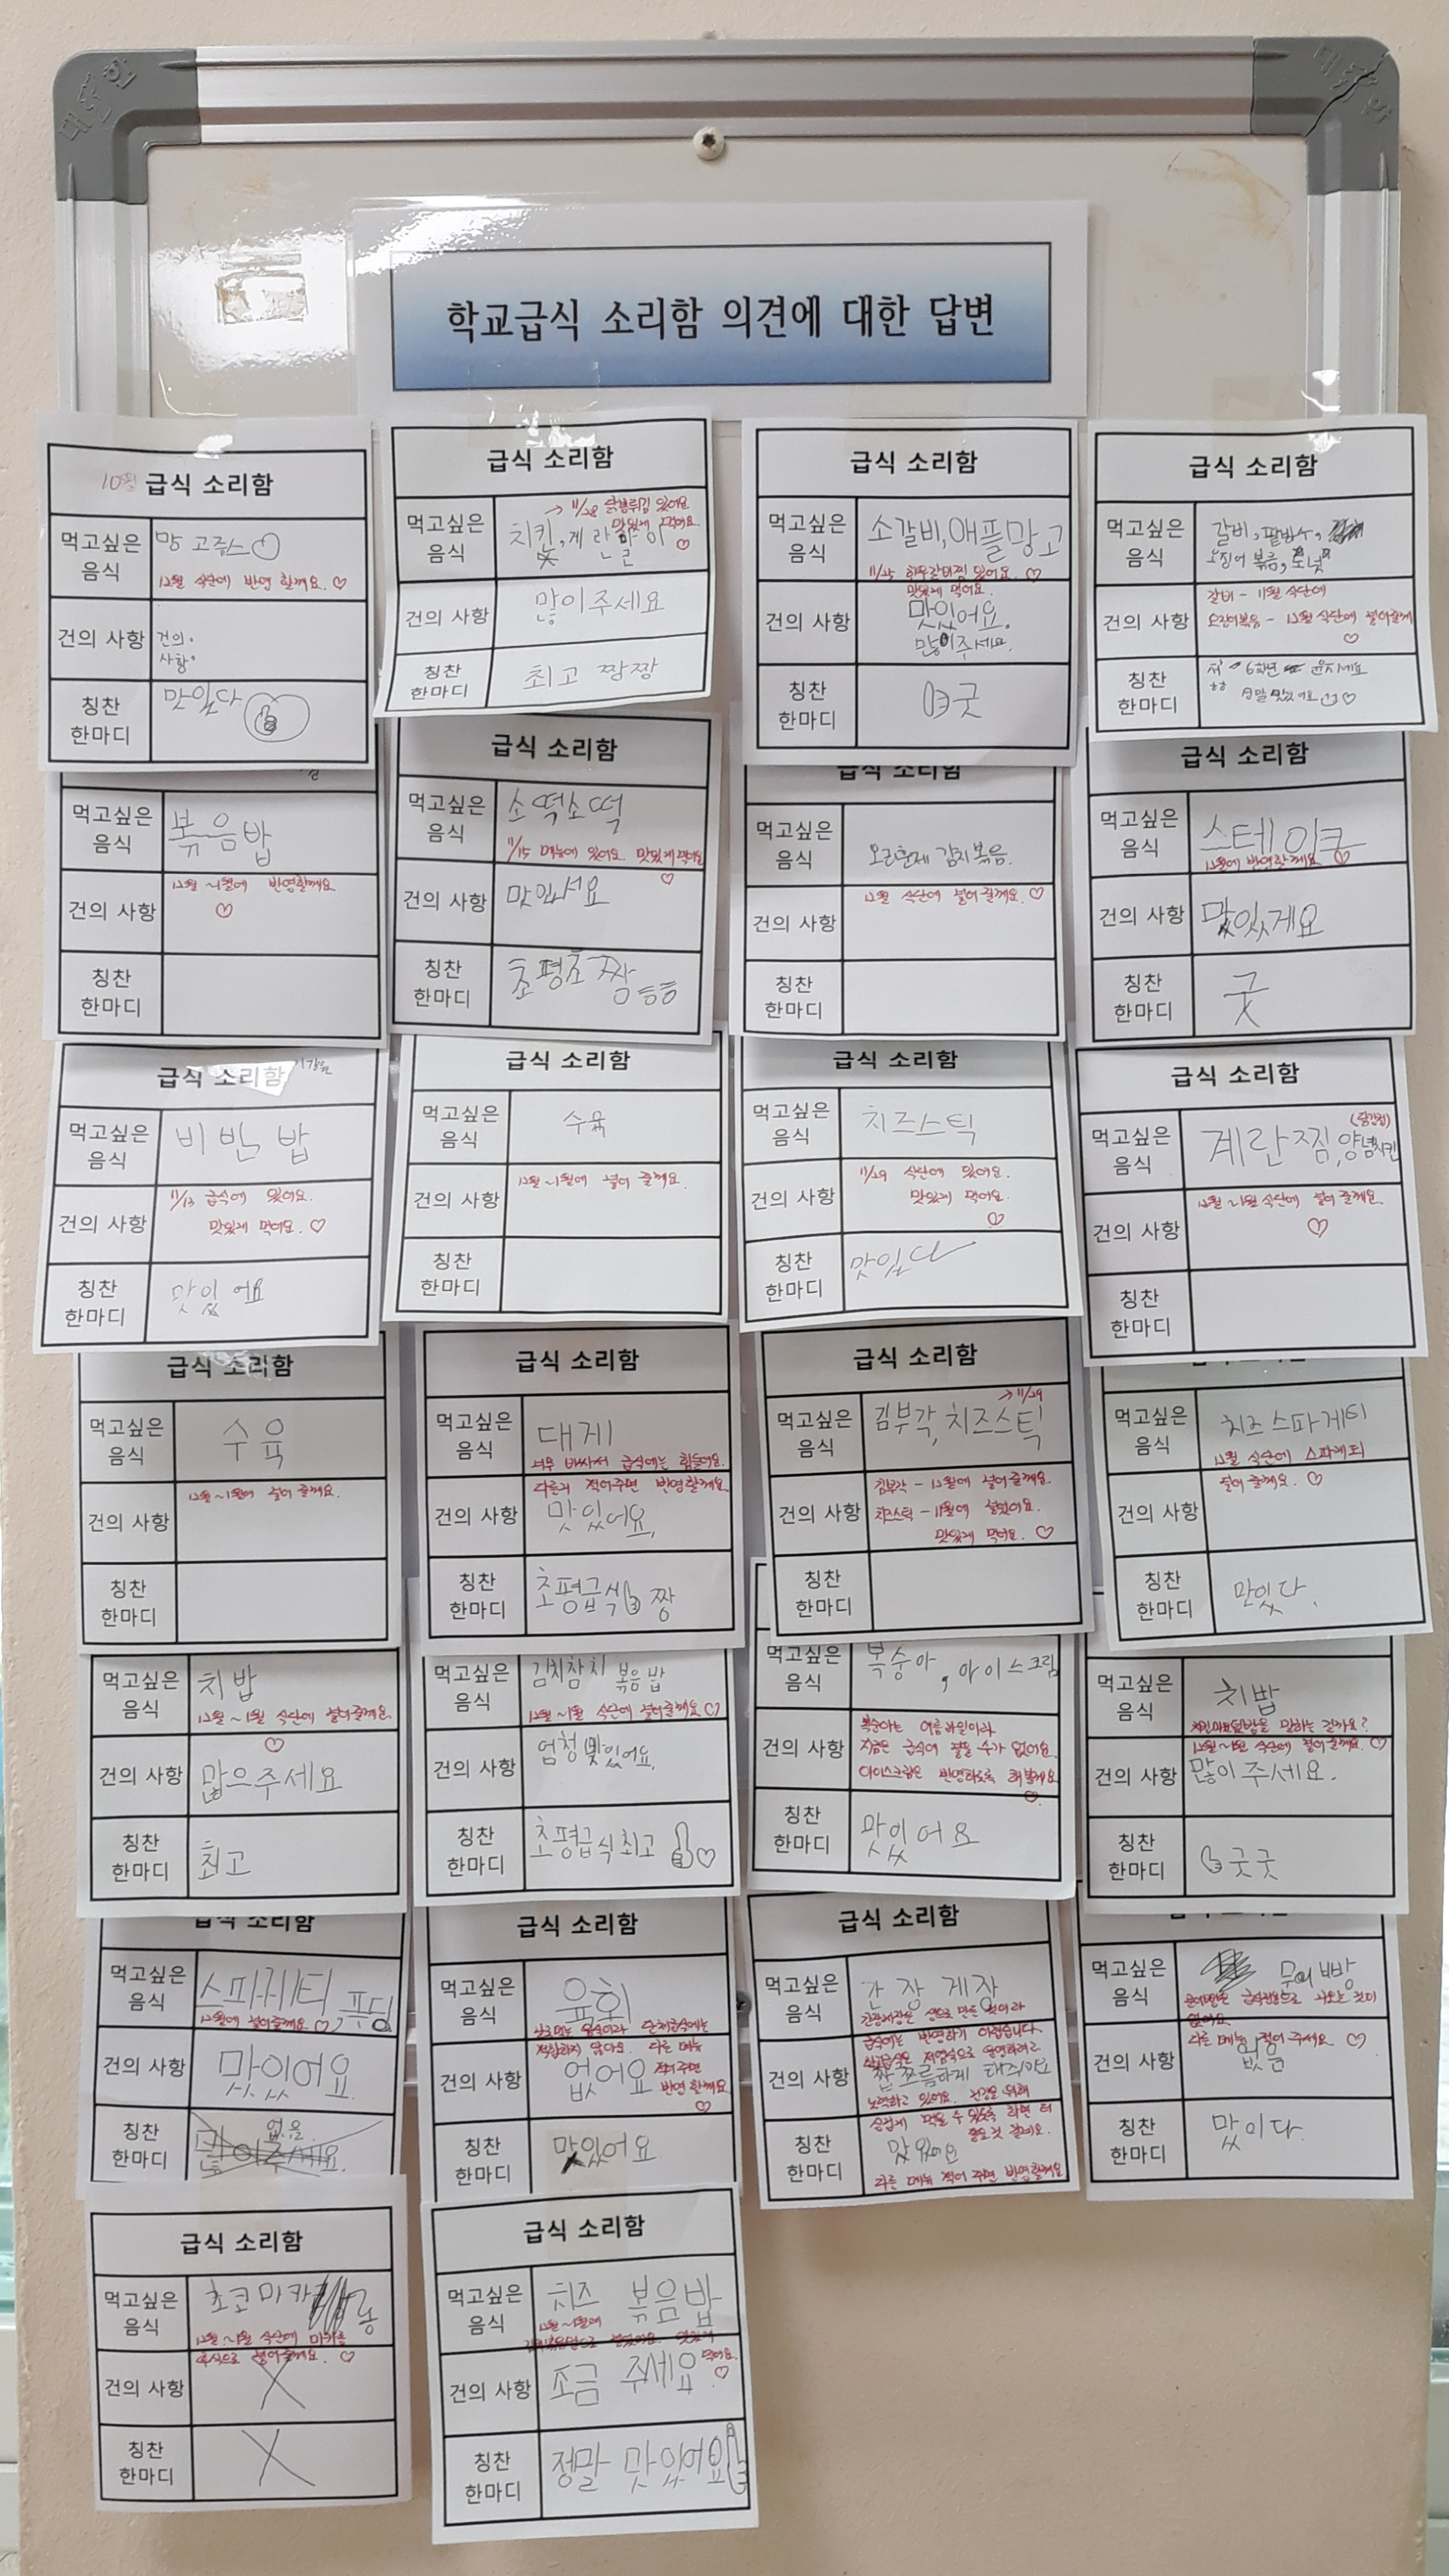 대한인
학교급식 소리함 의견에 대한 답변
10월 급식 소리함
먹고싶은 음식
망고쥬스♡
12월 식단에 반영 할께요. ♡
건의 사항
건의.
사항.
칭찬 한마디
맛있다
급식 소리함
먹고싶은 음식
→ 11/28 닭봉튀김 있어요
맛있게 먹어요. ♡
치킨, 계란말이
건의 사항
많이주세요
칭찬 한마디
최고 짱짱
급식 소리함
먹고싶은 음식
소갈비, 애플망고
11/25 한우갈비찜 있어요. ♡
맛있게 먹어요.
건의 사항
맛있어요.
많이주세요.
칭찬 한마디
굿
급식 소리함
먹고싶은 음식
갈비, 팥빙수,
오징어 볶음, 도넛
갈비 - 11월 식단에
오징어볶음 - 12월 식단에 넣어줄께
♡
건의 사항
칭찬 한마디
저 6학년 윤지예요
정말 맛있어요 ♡
먹고싶은 음식
볶음밥
건의 사항
12월~1월에 반영할께요
♡
칭찬 한마디
급식 소리함
먹고싶은 음식
소떡소떡
11/15 메뉴에 있어요. 맛있게 먹어요
♡
건의 사항
맛있서요
칭찬 한마디
초평초 짱
급식 소리함
먹고싶은 음식
오리훈제 김치볶음.
건의 사항
12월 식단에 넣어 줄께요. ♡
칭찬 한마디
급식 소리함
먹고싶은 음식
스테이크
12월에 반영할께요 ♡
건의 사항
맛있게요
칭찬 한마디
굿
급식 소리함
먹고싶은 음식
비빈밥
건의 사항
11/13 급식에 있어요.
맛있게 먹어요. ♡
칭찬 한마디
맛있어요
급식 소리함
먹고싶은 음식
수육
건의 사항
12월~1월에 넣어 줄께요.
칭찬 한마디
급식 소리함
먹고싶은 음식
치즈스틱
건의 사항
11/29 식단에 있어요.
맛있게 먹어요.
♡
칭찬 한마디
맛있다
급식 소리함
먹고싶은 음식
계란찜, 양념치킨
건의 사항
12월~1월 식단에 넣어 줄께요.
♡
칭찬 한마디
급식 소리함
먹고싶은 음식
수육
건의 사항
12월~1월에 넣어 줄께요.
칭찬 한마디
급식 소리함
먹고싶은 음식
대게
너무 비싸서 급식에는 힘들어요.
다른거 적어주면 반영할께요.
건의 사항
맛있어요.
칭찬 한마디
초평급식 짱
급식 소리함
먹고싶은 음식
→ 11/29
김부각, 치즈스틱
건의 사항
김부각 - 12월에 넣어줄께요.
치즈스틱 - 11월에 넣었어요.
맛있게 먹어요. ♡
칭찬 한마디
먹고싶은 음식
치즈스파게티
12월 식단에 스파게티
넣어 줄께요. ♡
건의 사항
칭찬 한마디
맛있다.
먹고싶은 음식
치밥
12월~1월 식단에 넣어줄께요.
♡
건의 사항
많으주세요
칭찬 한마디
최고
먹고싶은 음식
김치참치 볶음밥
12월~1월 식단에 넣어줄께요 ♡
건의 사항
엄청 맛있어요.
칭찬 한마디
초평급식최고 ♡
먹고싶은 음식
복숭아, 아이스크림
건의 사항
복숭아는 여름과일이라
지금은 급식에 쓸 수가 없어요.
아이스크림은 반영하도록 해볼께요.
♡
칭찬 한마디
맛있어요
먹고싶은 음식
치밥
치킨마요덮밥을 말하는 걸까요?
12월~1월 식단에 넣어줄께요. ♡
건의 사항
많이주세요.
칭찬 한마디
굿굿
급식 소리함
먹고싶은 음식
스파게티, 푸딩
12월에 넣어줄께요 ♡
건의 사항
맛있어요
칭찬 한마디
없음.
급식 소리함
먹고싶은 음식
육회
날로먹는 음식이라 단체급식에는
적합하지 않아요. 다른 메뉴
적어주면
반영 할께요
♡
건의 사항
없어요
칭찬 한마디
맛있어요
급식 소리함
먹고싶은 음식
간장게장
간장게장은 생으로 만든 것이라
급식에는 반영하기 어렵습니다.
학교급식은 저염식으로 운영하려고
건의 사항
짭쪼름하게 해주세요
노력하고 있어요. 건강을 위해
싱겁게 먹을 수 있도록 하면 더
좋을것 같네요.
칭찬 한마디
맛있어요
다른 메뉴 적어 주면 반영할께요
먹고싶은 음식
문어빵
없어요.
다른 메뉴 적어 주세요 ♡
건의 사항
없음
칭찬 한마디
맛이다.
급식 소리함
먹고싶은 음식
초코마카롱
12월~1월 식단에 마카롱
후식으로 넣어줄께요. ♡
건의 사항
X
칭찬 한마디
X
급식 소리함
먹고싶은 음식
치즈 볶음밥
12월~1월에
먹어요.
♡
건의 사항
조금 주세요
칭찬 한마디
정말 맛있어요